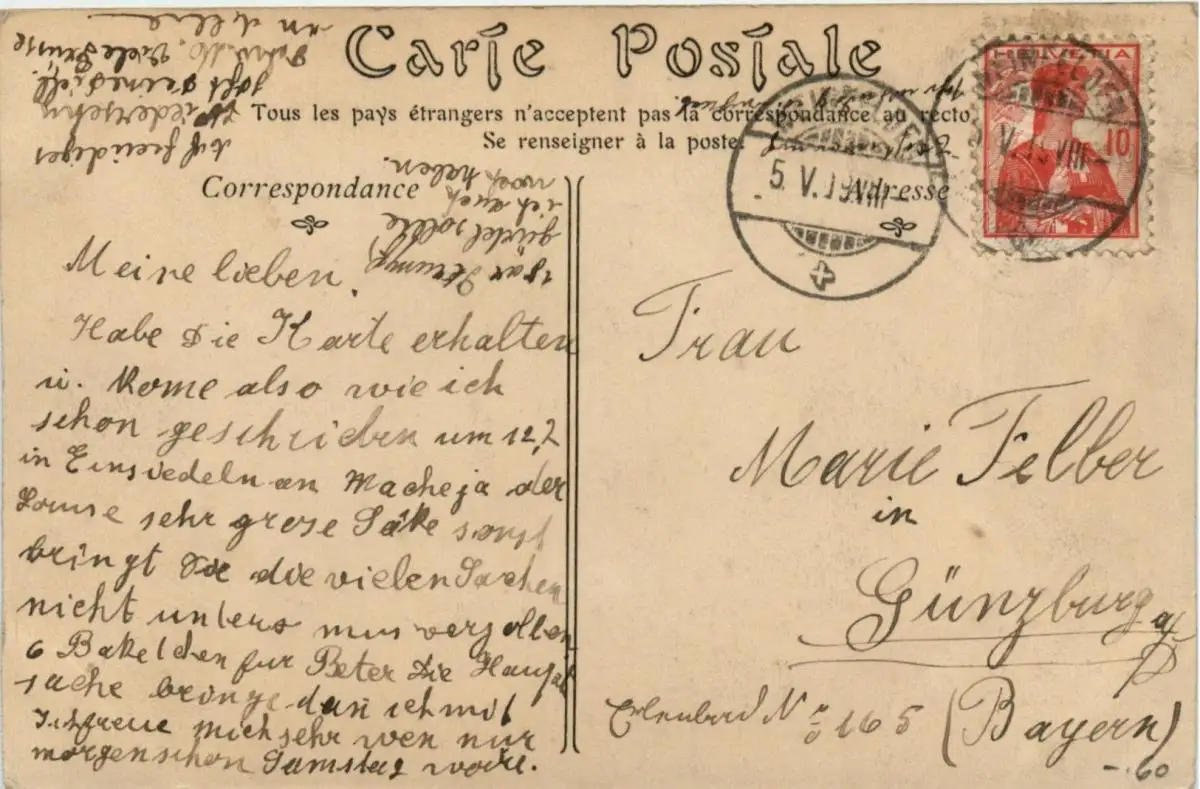 Carte Postale
Tous les pays étrangers n'acceptent pas la correspondance au recto.
Se renseigner à la poste.
Correspondance
Adresse
HELVETIA
10
5. V. 19 VIII
Meine lieben.
Habe die Karte erhalten
u. kome also wie ich
schon geschrieben um 12,7
in Einsiedeln an Mache ja der
Louise sehr grose Säke sonst
bringt Sie die vielen Sachen
nicht unters mus verzollen
6 Päkelchen für Peter Die Haupt
sache bringe dan ich mit
Ich freue mich sehr wen nur
morgen schon Samstag wäre.
Auf freudiges
Wiedersehn
viele Grüsse
an alle
gürtel solle
ich auch
noch haben.
Frau
Marie Felber
in
Günzburg a/
Erlenbad No 165 (Bayern)
-.60